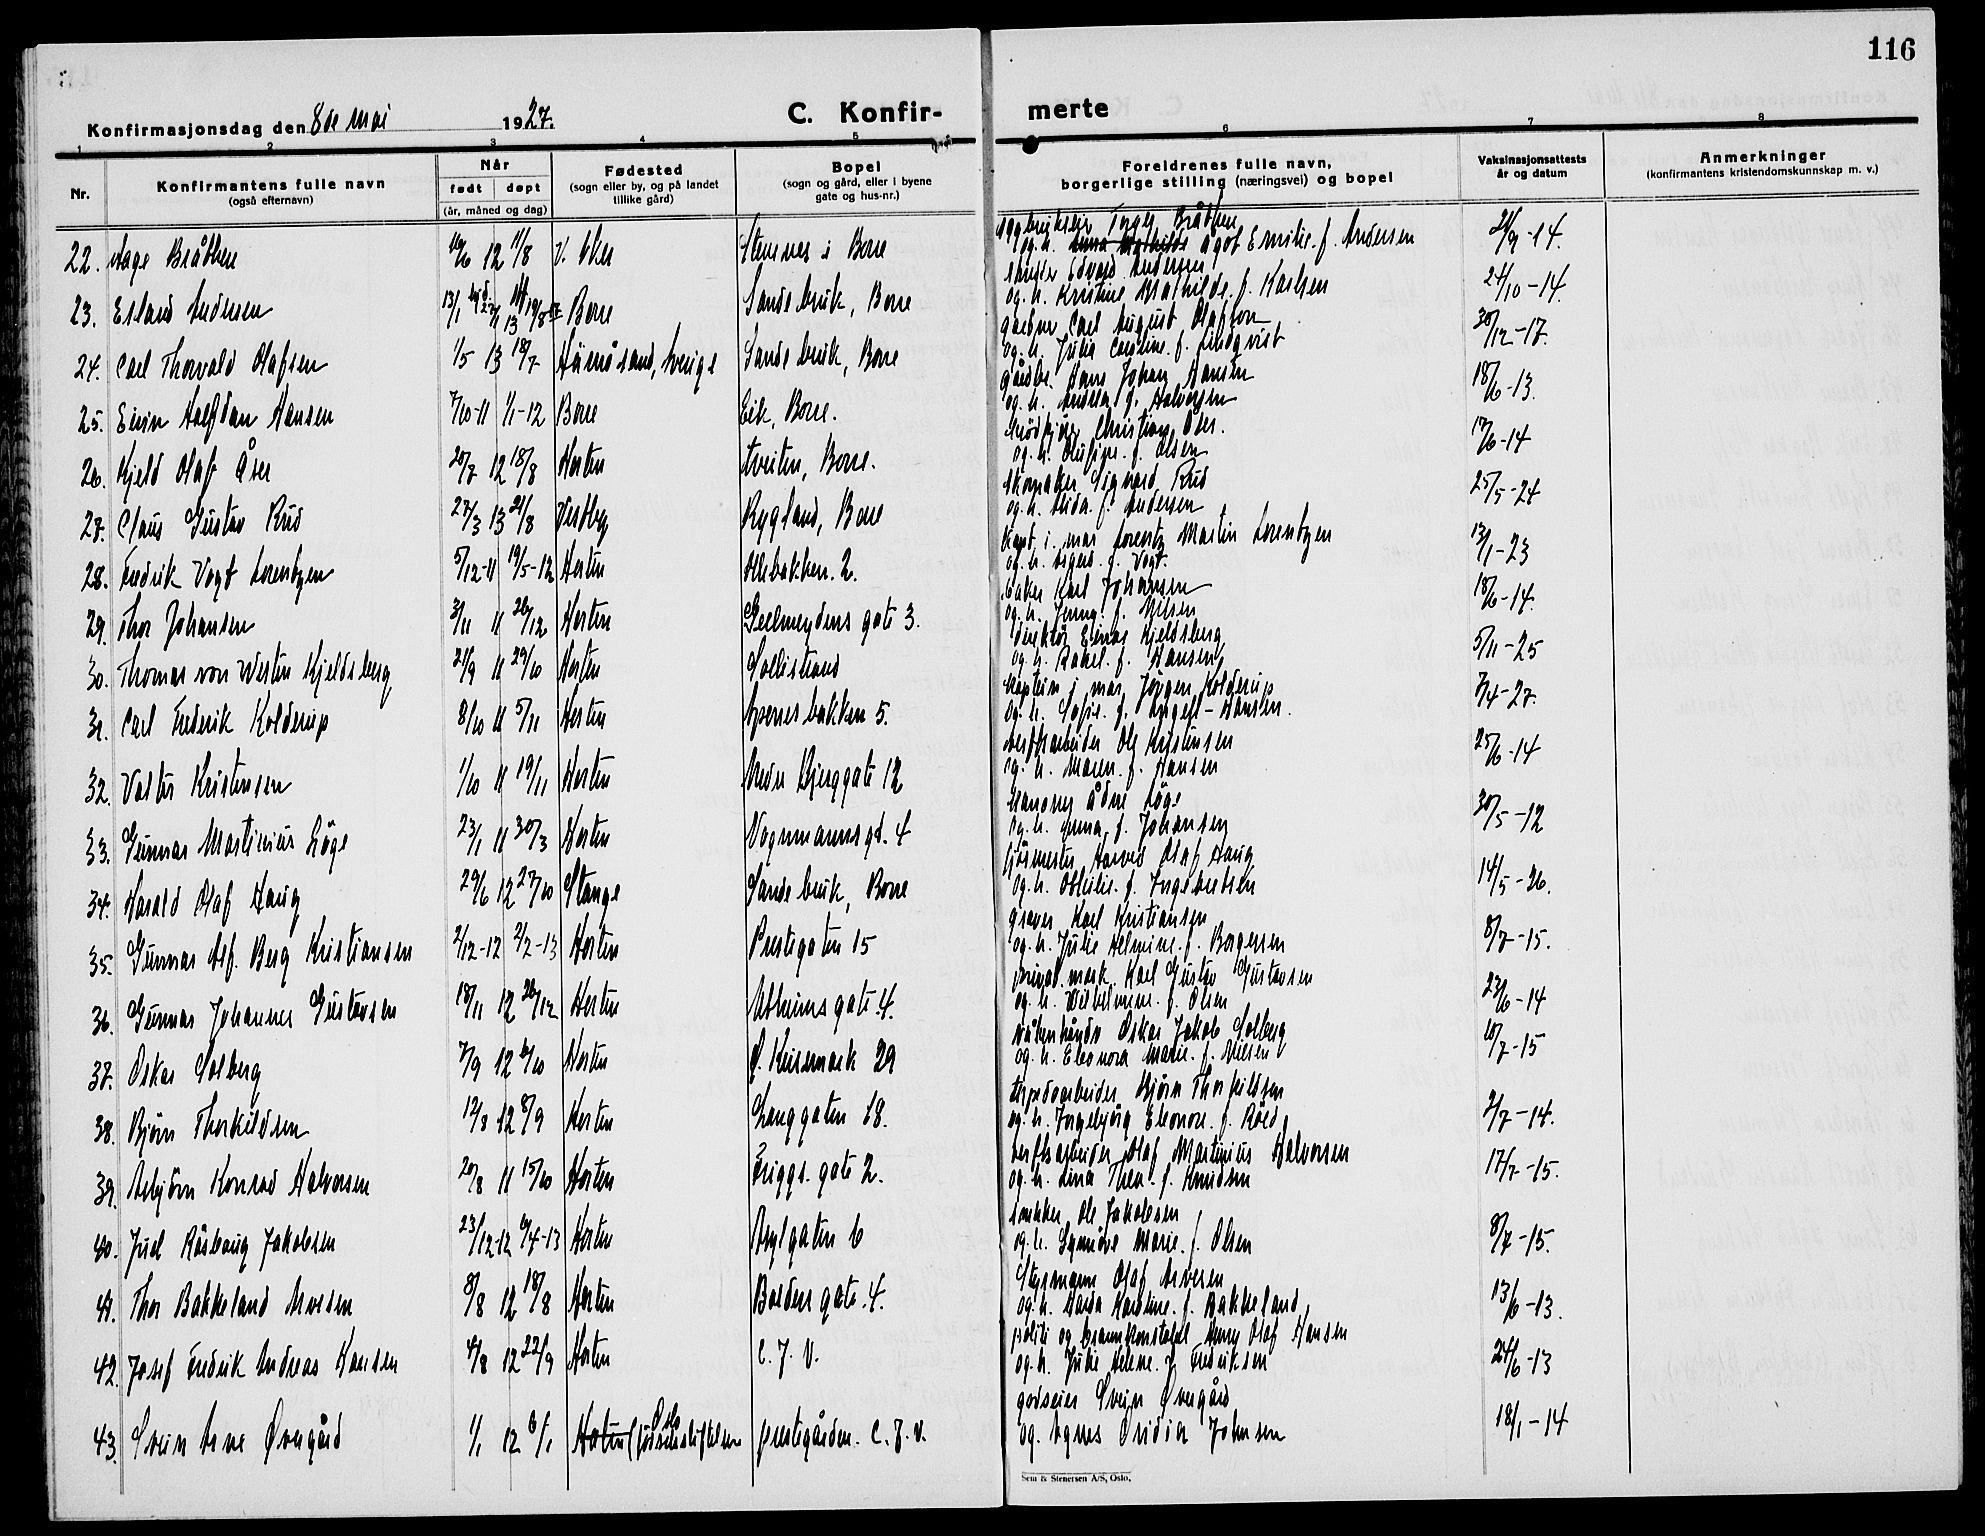 116
Konfirmasjonsdag den 8de mai 1927.
C. Konfir-
merte
1 2 3 4 5 6 7 8
Nr.
Konfirmantens fulle navn
(også efternavn)
Når
født døpt
(år, måned og dag)
Fødested
(sogn eller by, og på landet
tillike gård)
Bopel
(sogn og gård, eller i byene
gate og hus-nr.)
Foreldrenes fulle navn,
borgerlige stilling (næringsvei) og bopel
Vaksinasjonsattests
år og datum
Anmerkninger
(konfirmantens kristendomskunnskap m. v.)
22. Aage Bråthen 12 11/8 V. Aker i Borre
Bråthen
og h. Anna Mathilde Ågot Emilie f. Andersen
23. Erland Andersen 13/1 Borre Sandebruk, Borre
Edvard Andersen
og h. Kristine Mathilde f. Karlsen 24/10-14.
24. Carl Thorvald Olafsen 1/5 13 18/7 Härnösand, Sverige Sandebruk, Borre
gartner Carl August Olafson
og h. Julia Caroline f. Lindqvist 30/12-17.
25. Einar Halfdan Hansen 7/10-11 1/1-12 Borre Eik, Borre.
gårdbr. Hans Johan Hansen
og h. Andrea f. Halvorsen 18/6-13.
26. Kjeld Olaf Åser 20/7 12 18/8 Horten Tveiten, Borre.
Christian Åser.
og h. Olufine f. Olsen 17/6-14
27. Claus Gustav Rud 27/3 13 24/8 Vestby Rygland, Borre
skomaker Sigvard Rud
og h. Aida f. Andersen 25/5-24
28. Fredrik Vogt Lorentzen 5/12-11 19/5-12 Horten Ollebakken 2.
kapt. i mar. Lorentz Martin Lorentzen
og h. Sigrid f. Vogt. 13/1-23
29. Thor Johansen 3/11 11 26/12 Horten Geelmuydens gate 3.
baker Karl Johansen
og h. Jenny f. Nilsen 18/6-14.
30. Thomas von Westen Kjeldsberg 21/9 11 29/10 Horten Sollistrand
direktør Einar Kjeldsberg
og h. Rakel f. Hansen 5/11-25
31. Carl Fredrik Kolderup 8/10 11 5/11 Horten Apenesbakken 5.
kaptein i mar. Jörgen Kolderup
og h. Sofie f. Angell-Hansen. 7/4-27.
32. Valter Kristensen 1/10 11 19/11 Horten Nedre Bjerggate 12
verftsarbeider Ole Kristensen
og h. Maren f. Hansen 25/6-14
33. Gunnar Martinius Löge 23/1 11 30/3 Horten Vognmannsgt. 4
Ådne Löge
og h. Anna f. Johansen 30/5-12
34. Harald Olaf Haug 29/6 12 27/10 Stange Sandebruk, Borre
Harald Olaf Haug
og h. Othilie f. Ingebretsen 14/5-26.
35. Gunnar Alf Berg Kristiansen 2/12-12 2/2-13 Horten Prestegaten 15
graver Karl Kristiansen
og h. Julie Helmine f. Borgersen 8/7-15.
36. Gunnar Johannes Gustavsen 18/11 12 26/12 Horten Ulheimsgate 4.
Karl Gustav Gustavsen
og h. Wilhelmine f. Olsen 23/6-14
37. Oskar Solberg 7/9 12 6/10 Horten Ö. Keisemark 29
Oskar Jakob Solberg
og h. Eleonora Marie f. Nilsen 10/7-15
38. Björn Thorkildsen 12/8 12 8/9 Horten Langgaten 18.
torpedoarbeider Björn Thorkildsen
og h. Ingebjörg Eleonore f. Röed 2/7-14.
39. Asbjörn Konrad Halvorsen 20/8 11 15/10 Horten Friggs gate 2.
verftsarbeider Olaf Martinius Halvorsen
og h. Lina Thea f. Knudsen 17/7-15.
40. Juel Jakobsen 23/12-12 6/4-13 Horten Asylgaten 6
snekker Ole Jakobsen
og h. Synnöve Marie f. Olsen 8/7-15.
41. Thor Bakkeland Arvesen 8/8 12 18/8 Horten Boldens gate 4.
Styrmann Olaf Arvesen
og h. Karoline f. Bakkeland 13/6-13.
42. Josef Fredrik Andreas Hansen 4/8 12 22/9 Horten C. J. V.
politi og brannkonstabel Henry Olaf Hansen
og h. Julie Helene f. Fredriksen 24/6-13
43. Svein Arne Övergård 1/1 12 6/1 Horten Oslo (födselsstiftelsen prestegården. C. J. V.
godseier Svein Övergård
og Agnes Ovidia Johnsen 18/1-14
Sem & Stenersen A/S, Oslo.